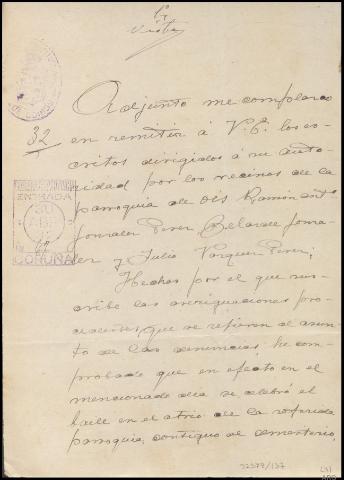 Vista
Adjunto me complazco
en remitir á V.E. los es-
critos dirigidos á su auto-
ridad por los vecinos de la
parroquia de Ois Ramón Antº
Gonzalez Perez, Gonza-
lez y Julio Vazquez Perez;
Hechas por el que sus-
cribe las averiguaciones pro-
cedentes, que se refieren al asun-
to de las denuncias, he com-
probado que en efecto en el
mencionado dia se celebró el
baile en el atrio de la referida
parroquia, contiguo al cementerio,
32
ENTRADA
30
CORUÑA
32377/137